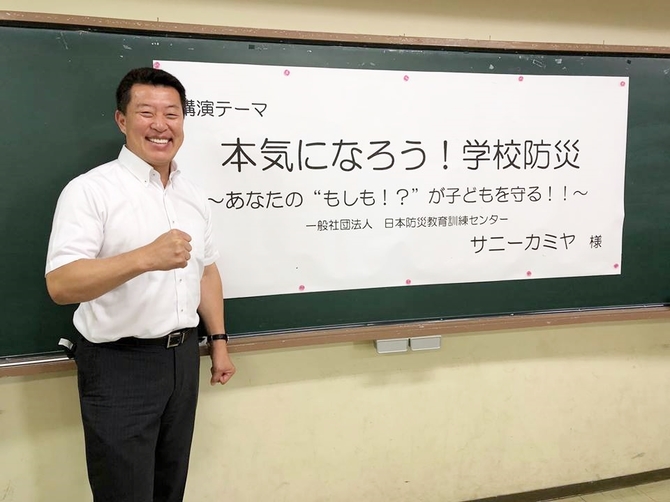 講演テーマ
本気になろう！学校防災
～あなたの“もしも！？”が子どもを守る！！～
一般社団法人　日本防災教育訓練センター
サニーカミヤ　様